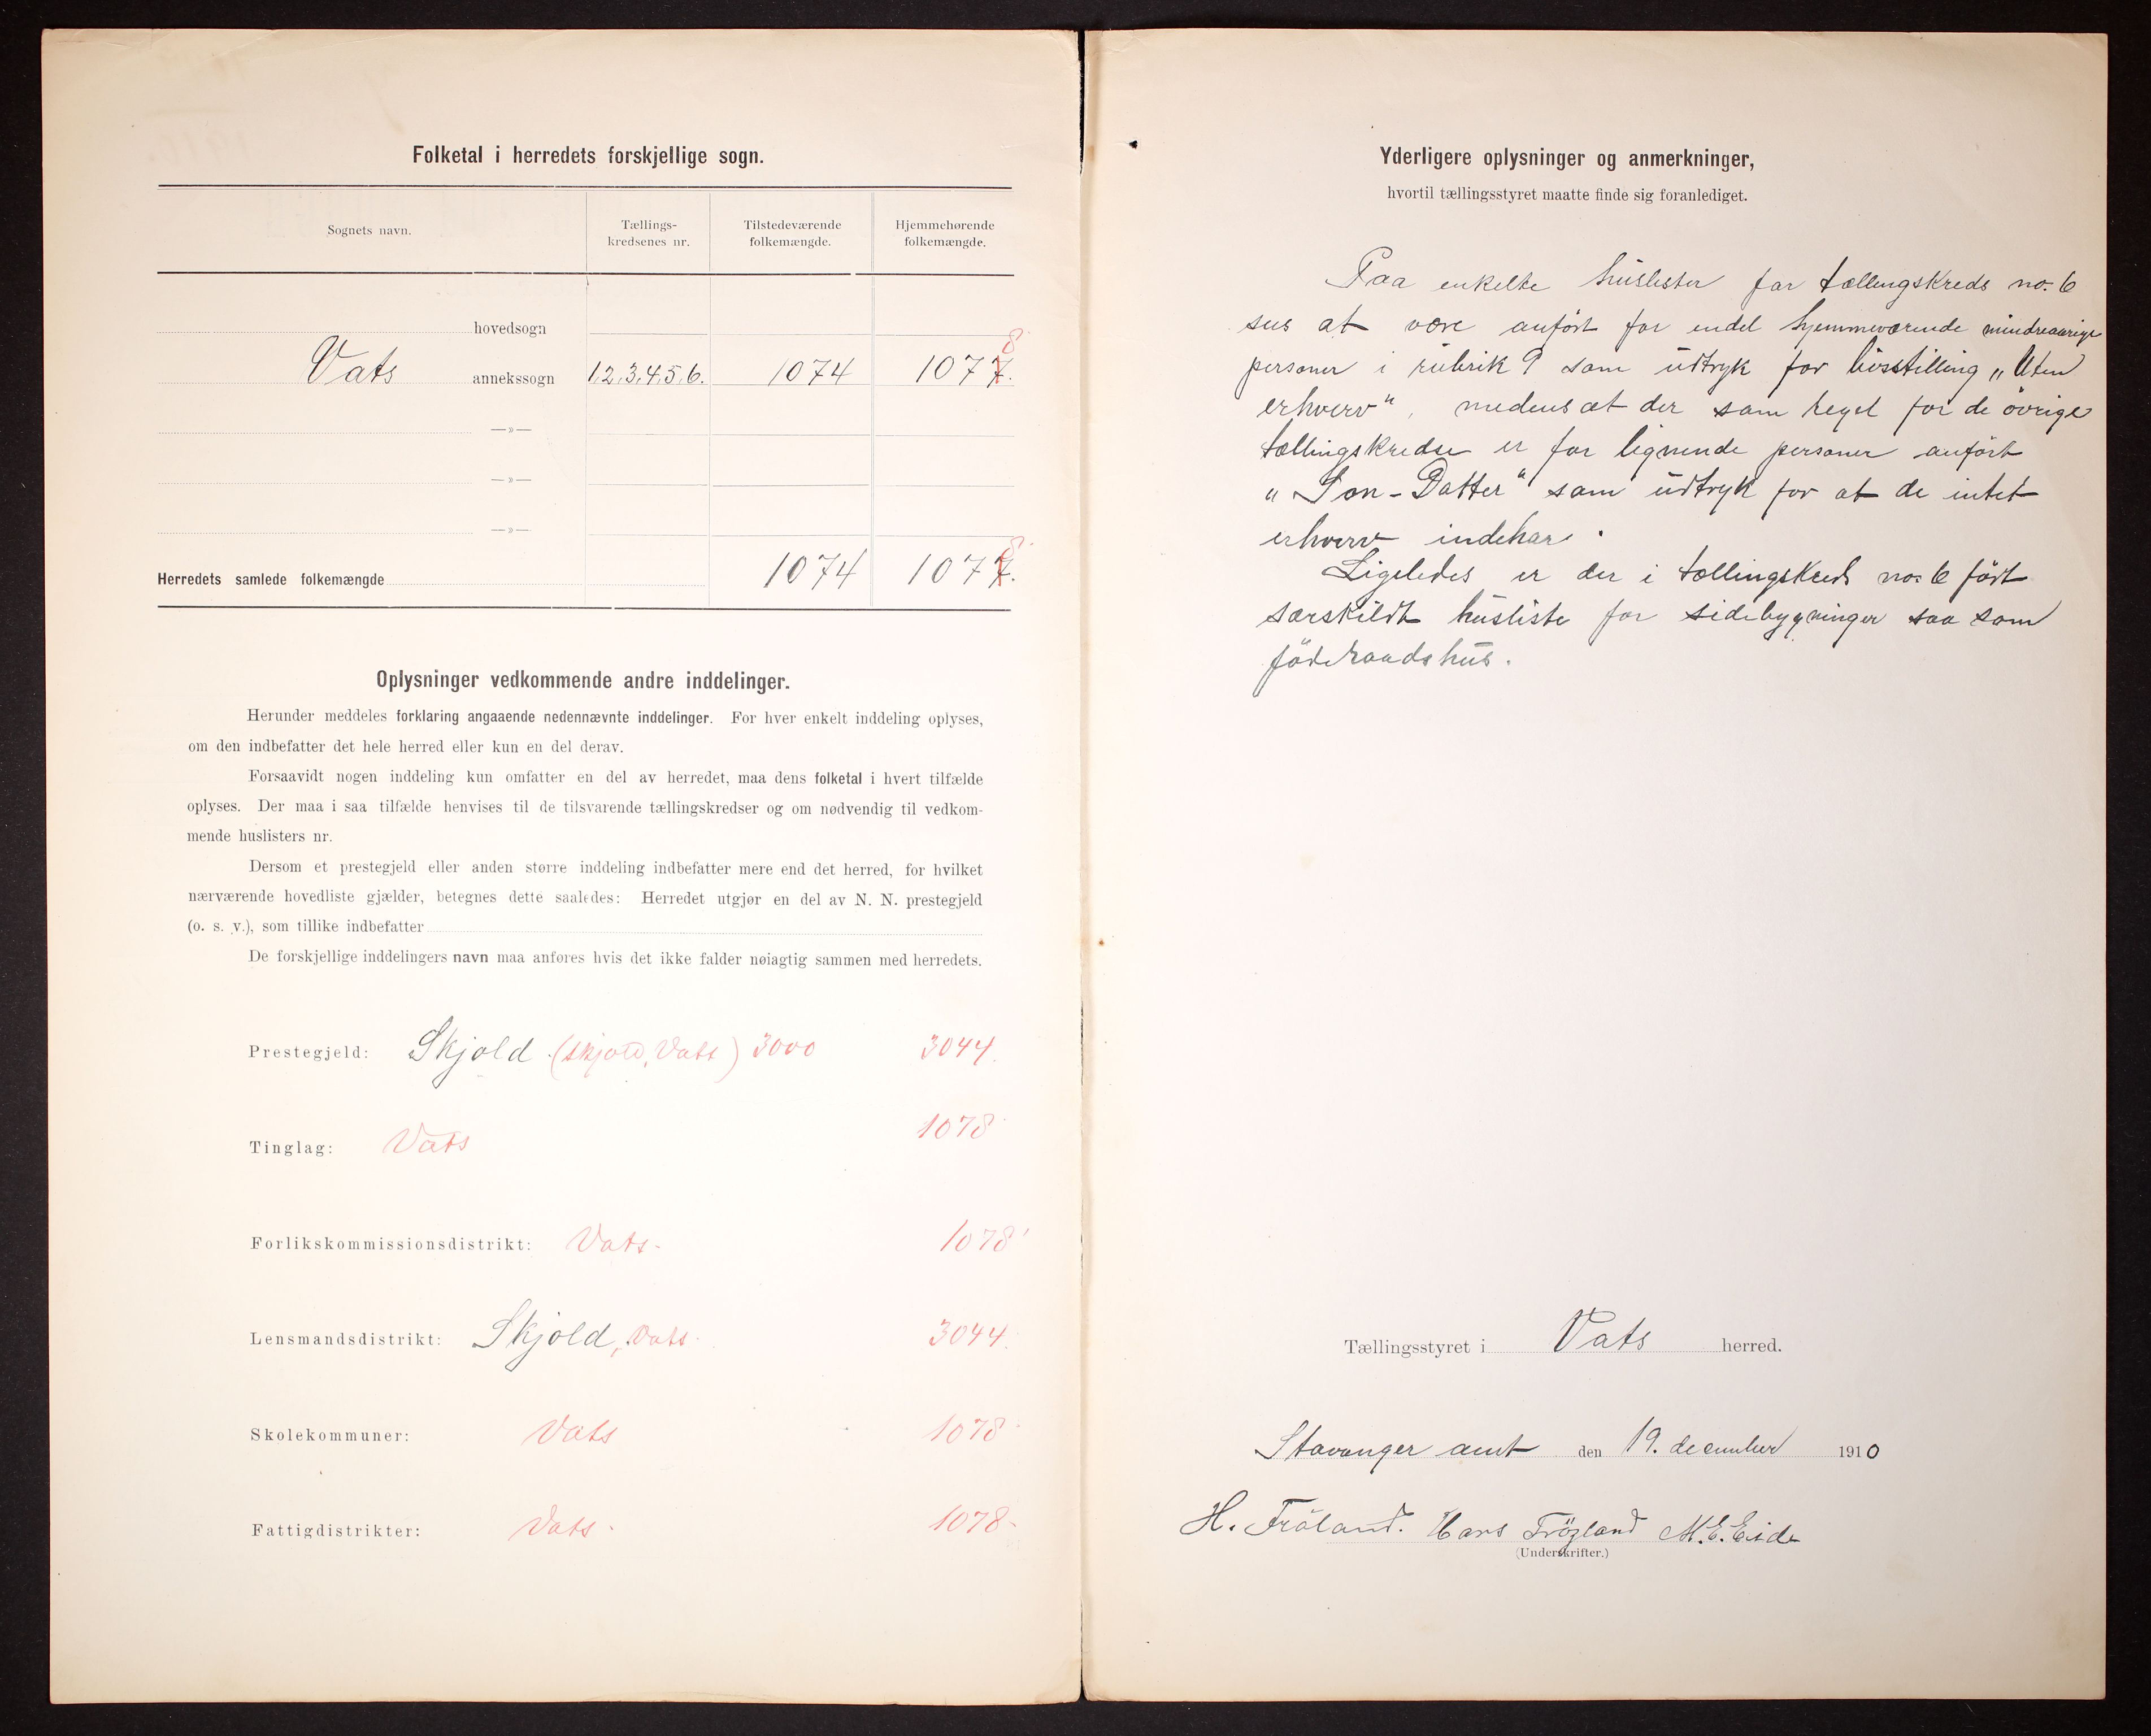 Folketal i herredets forskjellige sogn.
Sognets navn. Tællings-kredsenes nr. Tilstedeværende folkemængde. Hjemmehørende folkemængde.
hovedsogn
8
Vats annekssogn 1,2,3,4,5,6. 1074 1077.
—»—
—»—
—»—
8
Herredets samlede folkemængde 1074 1077.
Oplysninger vedkommende andre inddelinger.
Herunder meddeles forklaring angaaende nedennævnte inddelinger. For hver enkelt inddeling oplyses,
om den indbefatter det hele herred eller kun en del derav.
Forsaavidt nogen inddeling kun omfatter en del av herredet, maa dens folketal i hvert tilfælde
oplyses. Der maa i saa tilfælde henvises til de tilsvarende tællingskredser og om nødvendig til vedkom-
mende huslisters nr.
Dersom et prestegjeld eller anden større inddeling indbefatter mere end det herred, for hvilket
nærværende hovedliste gjælder, betegnes dette saaledes: Herredet utgjør en del av N. N. prestegjeld
(o. s. v.), som tillike indbefatter
De forskjellige inddelingers navn maa anføres hvis det ikke falder nøiagtig sammen med herredets.
Prestegjeld: Skjold (Skjold, Vats) 3000 3044.
Tinglag: Vats 1078
Forlikskommissionsdistrikt: Vats. 1078
Lensmandsdistrikt: Skjold, Vats. 3044.
Skolekommuner: Vats 1078
Fattigdistrikter: Vats. 1078
Yderligere oplysninger og anmerkninger,
hvortil tællingsstyret maatte finde sig foranlediget.
Paa enkelte huslister for tællingskreds no. 6
sees at være anført for endel hjemmeværende mindreaarige
personer i rubrik 9 som udtryk for livsstilling „Uten
erhverv", medens at der som regel for de øvrige
tællingskredse er for lignende personer anført
„Søn-Datter" som udtryk for at de intet
erhverv indehar.
Ligeledes er der i tællingskreds no. 6 ført
særskildt husliste for sidebygninger saa som
föderaadshus.
Tællingsstyret i Vats herred.
Stavanger amt den 19. december 1910
H. Fröland. Hans Trögland M. E. Eide
(Underskrifter.)